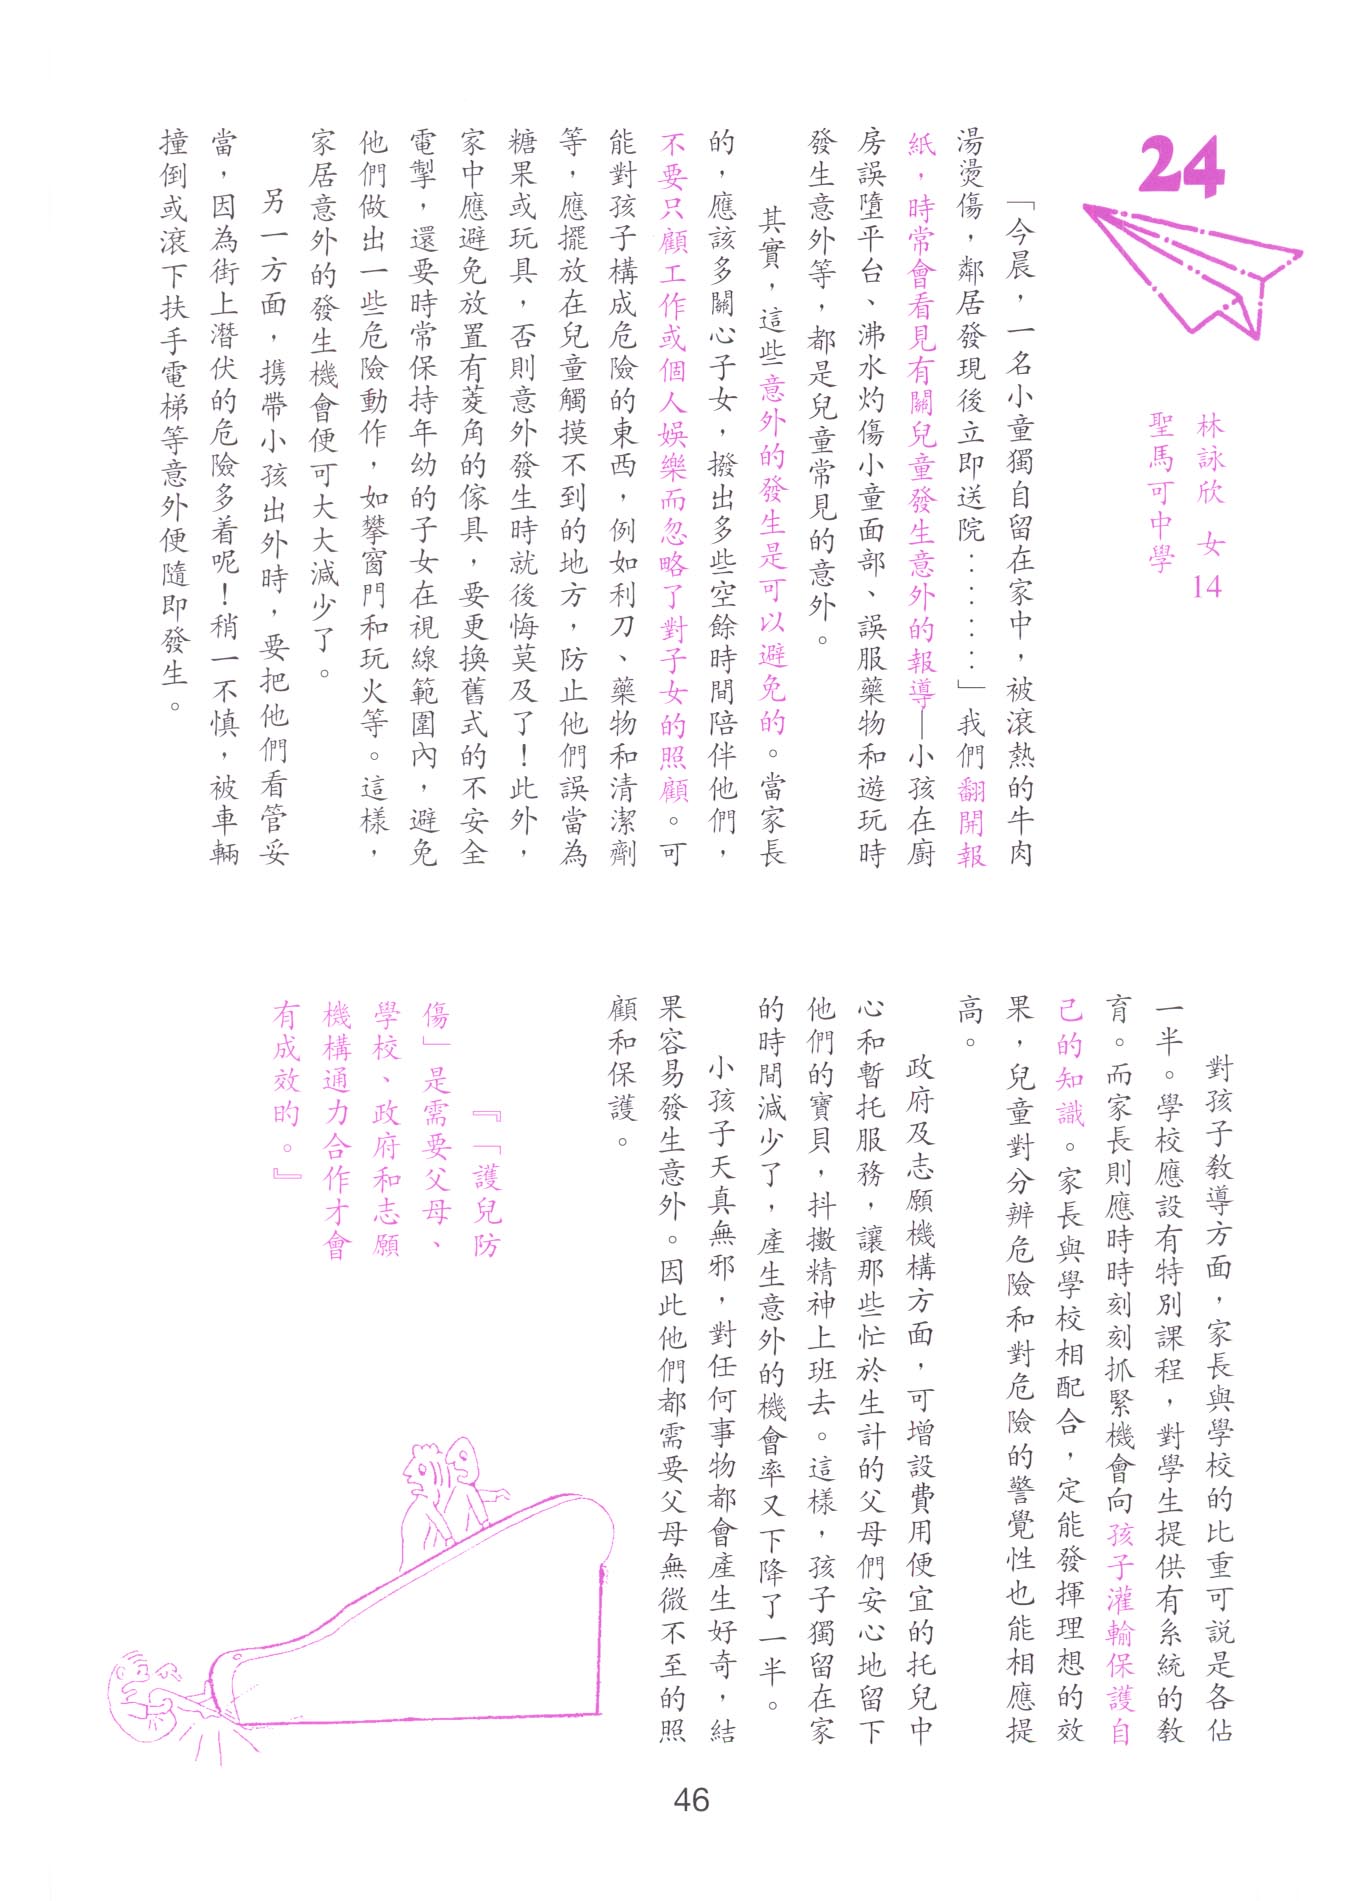 24
林詠欣　女　14
聖馬可中學
「今晨，一名小童獨自留在家中，被滾熱的牛肉
湯燙傷，鄰居發現後立即送院………」我們翻開報
紙，時常會看見有關兒童發生意外的報導—小孩在廚
房誤墮平台、沸水灼傷小童面部、誤服藥物和遊玩時
發生意外等，都是兒童常見的意外。
其實，這些意外的發生是可以避免的。當家長
的，應該多關心子女，撥出多些空餘時間陪伴他們，
不要只顧工作或個人娛樂而忽略了對子女的照顧。可
能對孩子構成危險的東西，例如利刀、藥物和清潔劑
等，應擺放在兒童觸摸不到的地方，防止他們誤當為
糖果或玩具，否則意外發生時就後悔莫及了！此外，
家中應避免放置有菱角的傢具，要更換舊式的不安全
電掣，還要時常保持年幼的子女在視線範圍內，避免
他們做出一些危險動作，如攀窗門和玩火等。這樣，
家居意外的發生機會便可大大減少了。
另一方面，携帶小孩出外時，要把他們看管妥
當，因為街上潛伏的危險多着呢！稍一不慎，被車輛
撞倒或滾下扶手電梯等意外便隨即發生。
對孩子教導方面，家長與學校的比重可說是各佔
一半。學校應設有特別課程，對學生提供有系統的教
育。而家長則應時時刻刻抓緊機會向孩子灌輸保護自
己的知識。家長與學校相配合，定能發揮理想的效
果，兒童對分辨危險和對危險的警覺性也能相應提
高。
政府及志願機構方面，可增設費用便宜的托兒中
心和暫托服務，讓那些忙於生計的父母們安心地留下
他們的寶貝，抖擻精神上班去。這樣，孩子獨留在家
的時間減少了，產生意外的機會率又下降了一半。
小孩子天真無邪，對任何事物都會產生好奇，結
果容易發生意外。因此他們都需要父母無微不至的照
顧和保護。
『「護兒防
傷」是需要父母、
學校、政府和志願
機構通力合作才會
有成效的。』
46